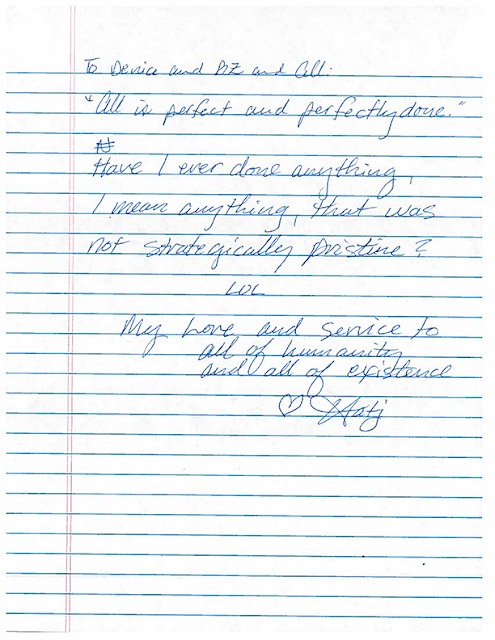 To Denice and DZ and All:
"All is perfect and perfectly done."
Have I ever done anything,
I mean anything, that was
not strategically pristine?
LOL
My Love and service to
all of humanity
and all of existence
♡